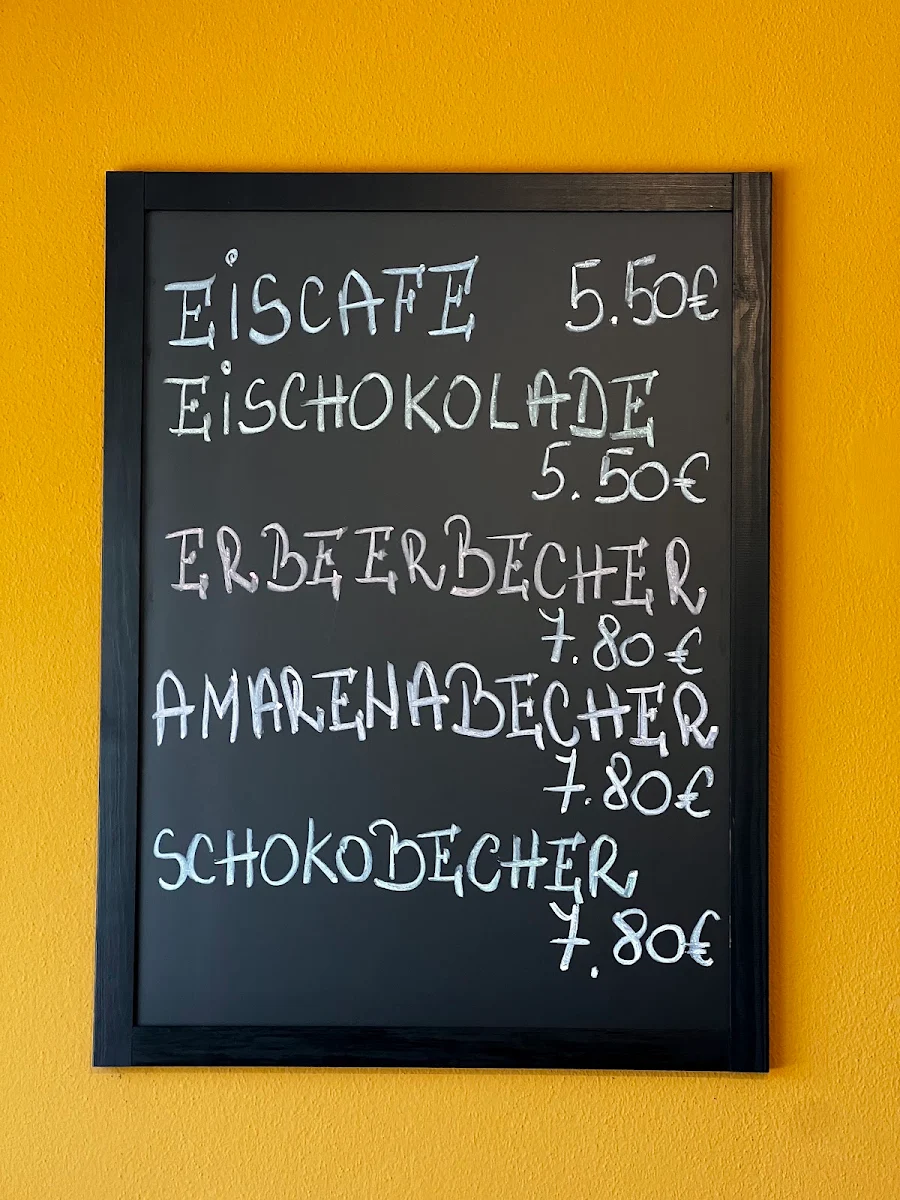 EiSCAFE 5.50€
EiSCHOKOLADE
5.50€
ERBEERBECHER
7.80€
AMARENABECHER
7.80€
SCHOKOBECHER
7.80€